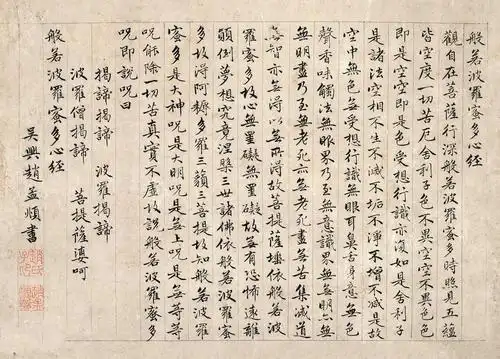 般若波羅蜜多心經
觀自在菩薩行深般若波羅蜜多時照見五蘊
皆空度一切苦厄舍利子色不異空空不異色色
即是空空即是色受想行識亦復如是舍利子
是諸法空相不生不滅不垢不淨不增不減是故
空中無色無受想行識無眼耳鼻舌身意無色
聲香味觸法無眼界乃至無意識界無無明亦無
無明盡乃至無老死亦無老死盡無苦集滅道
無智亦無得以無所得故菩提薩埵依般若波
羅蜜多故心無罣礙無罣礙故無有恐怖遠離
顛倒夢想究竟涅槃三世諸佛依般若波羅蜜
多故得阿耨多羅三藐三菩提故知般若波羅
蜜多是大神咒是大明咒是無上咒是無等等
咒能除一切苦真實不虛故說般若波羅蜜多
咒即說咒曰
揭諦揭諦 波羅揭諦
波羅僧揭諦 菩提薩婆訶
般若波羅蜜多心經
吳興趙孟頫書